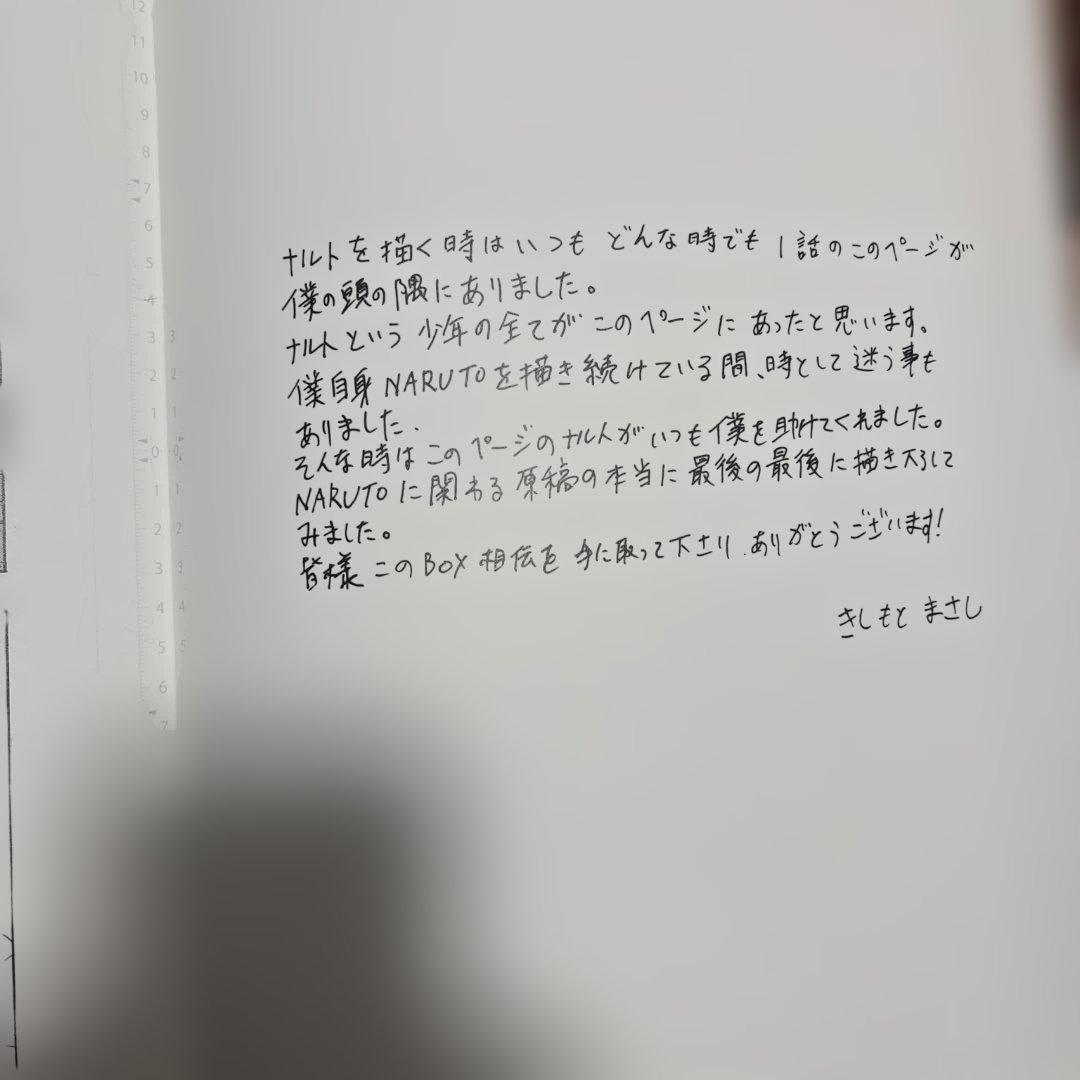 12
11
10
9
8
7
6
5
4
3 3
2 2
1 1
0 0
1 1
2 2
3 3
4 4
5 5
6
7
ナルトを描く時はいつも どんな時でも 1話のこのページが
僕の頭の隅にありました。
ナルトという少年の全てがこのページにあったと思います。
僕自身NARUTOを描き続けている間、時として迷う事も
ありました.
そんな時はこのページのナルトがいつも僕を助けてくれました。
NARUTOに関わる原稿の本当に最後の最後に描き下ろして
みました。
皆様このBOX相伝を手に取って下さり.ありがとうございます!
きしもと まさし